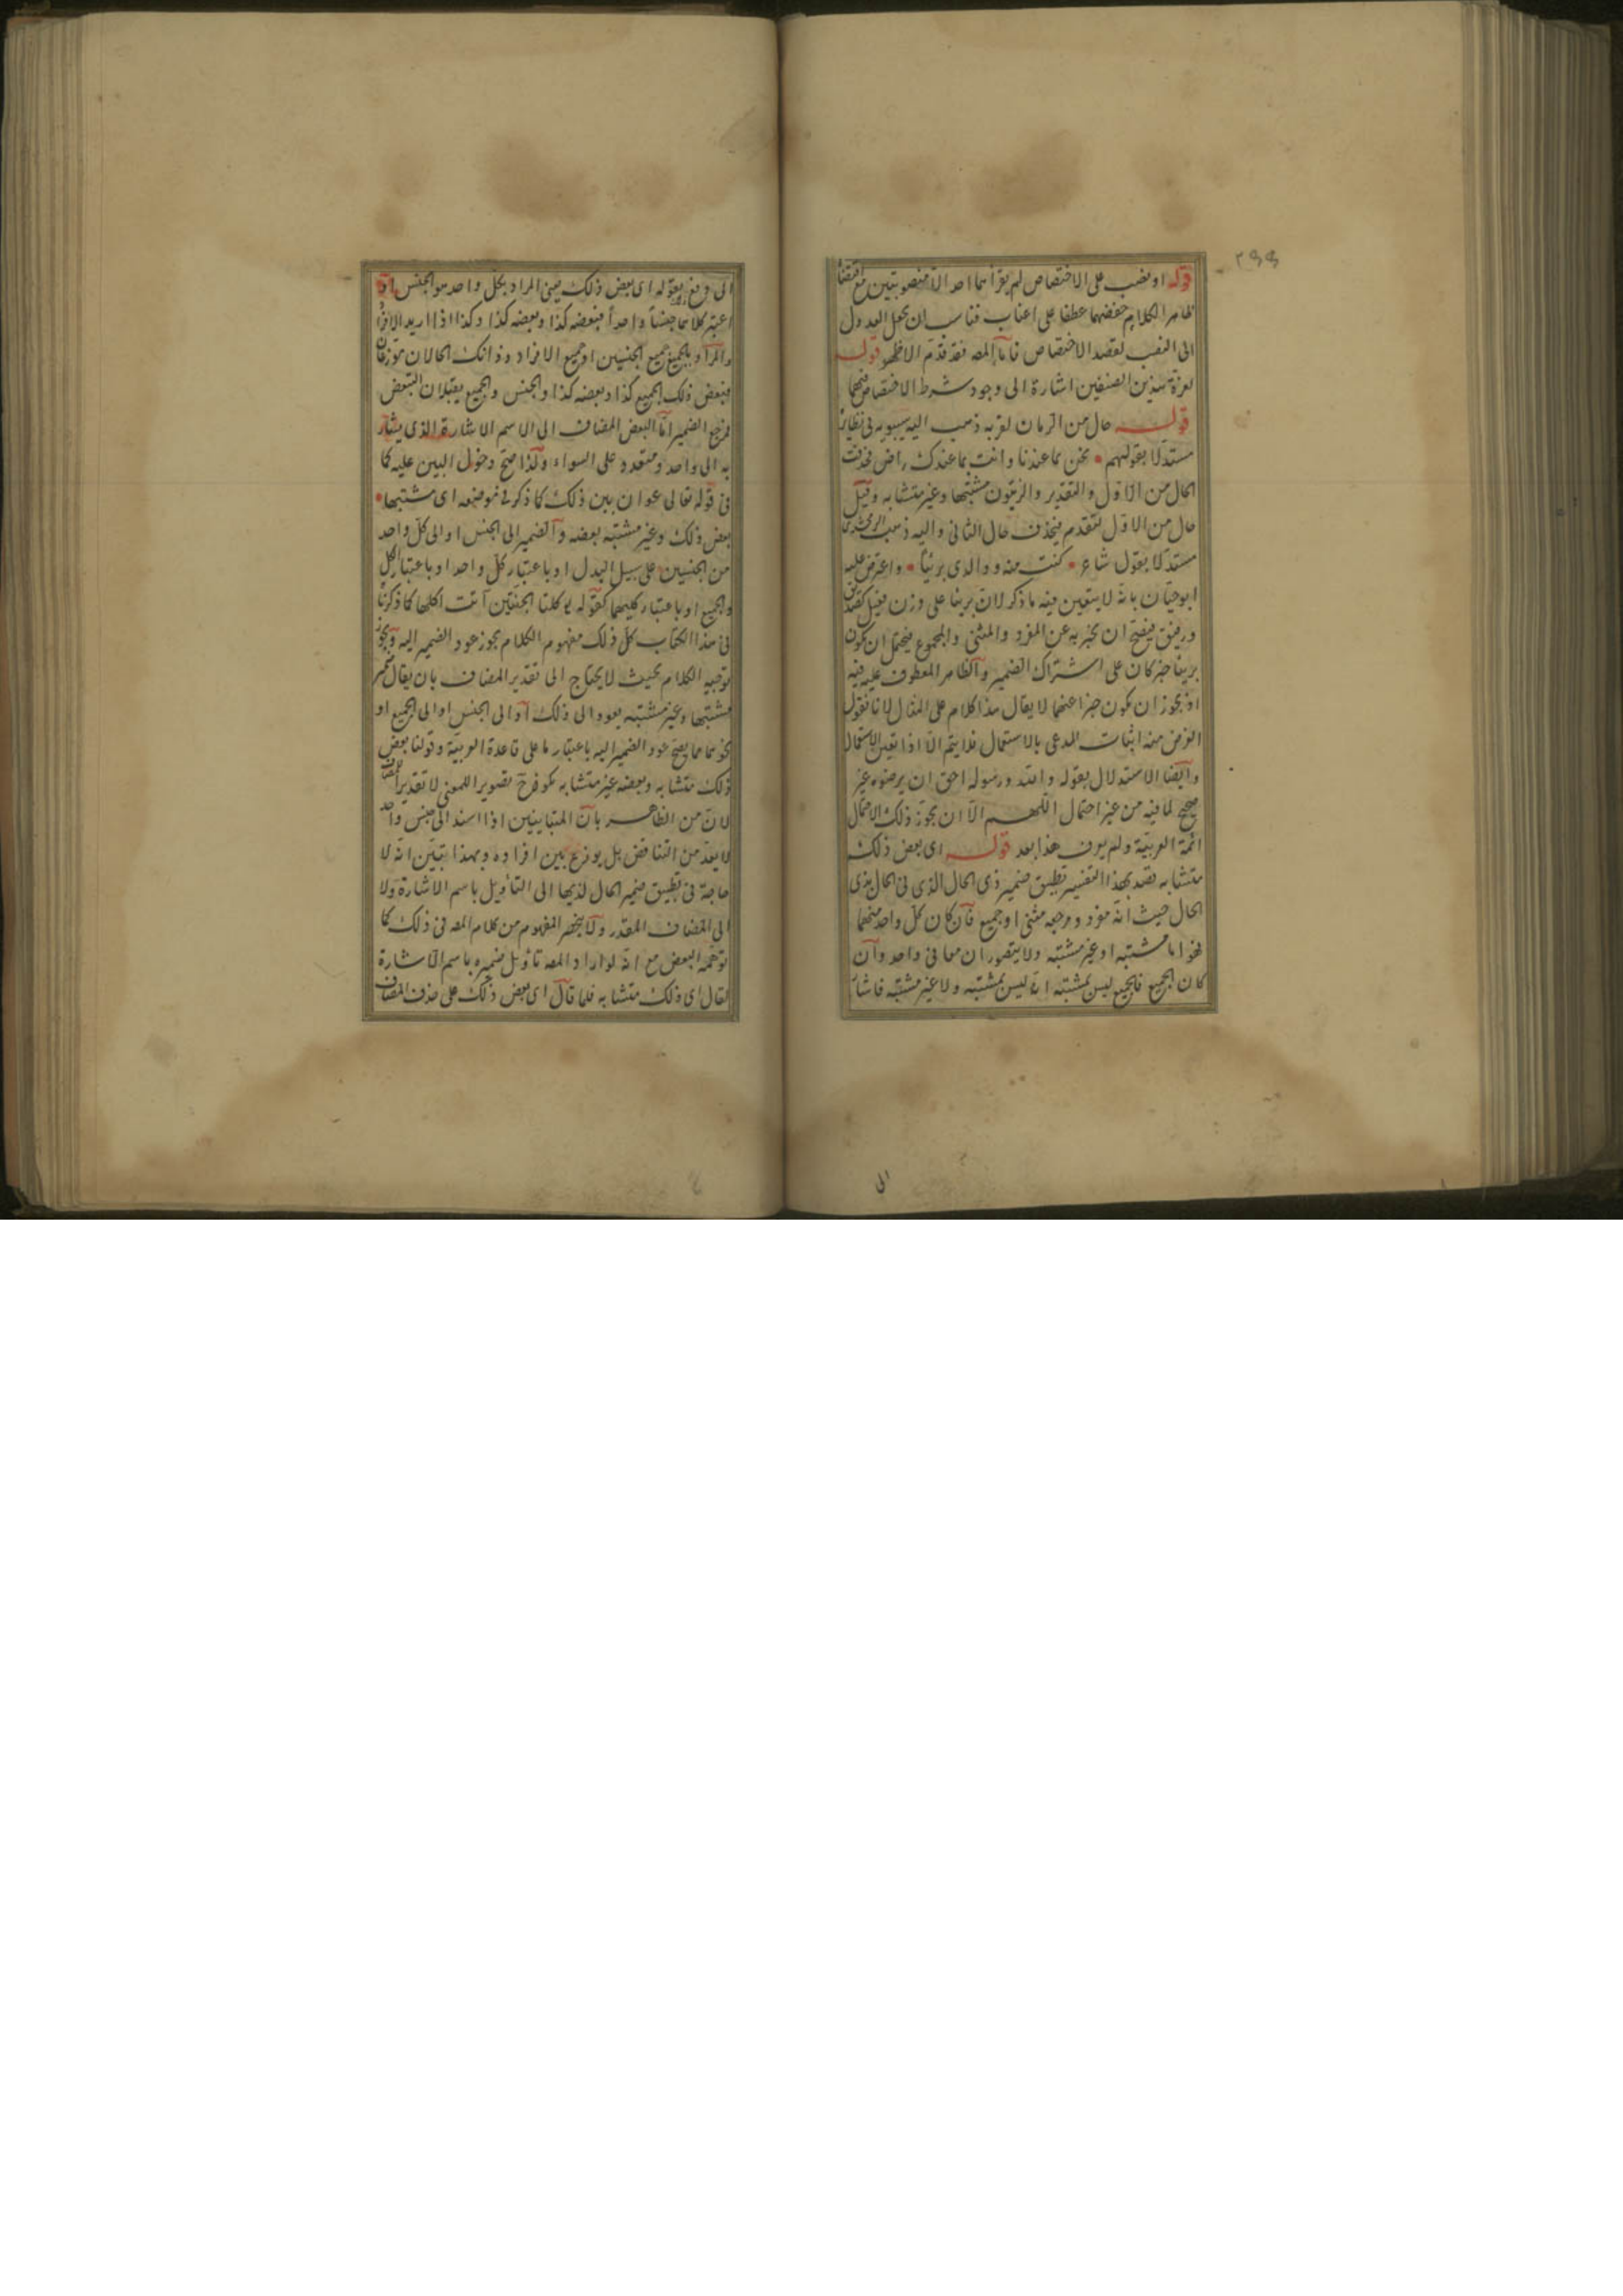 ٢٩٩
قوله او نصب على الاختصاص لم يقرأهما احد الا منصوبتين مع اقتضاء
ظاهر الكلام خفضهما عطفا على اعناب فناسب ان يجعل العدول
الى النصب لقصد الاختصاص فاما المصه فقد قدم الاظهر قوله
لعزة هذين الصنفين اشارة الى وجود شرط الاختصاص فيهما
قوله حال من الرمان لقربه ذهب اليه سيبويه فى نظائر
مستدلا بقولهم نحن بما عندنا وانت بما عندك راض فحذفت
الحال من الاول والتقدير والزيتون مشتبها وغير متشابه وقيل
حال من الاول لتقدم فيحذف حال الثانى واليه ذهب الزمخشرى
مستدلا بقول شاعر كنت منه ووالدى بريئا واعترض عليه
ابو حيان بانه لا يتعين فيه ما ذكر لان بريئا على وزن فعيل كصديق
ورفيق فيصح ان يخبر به عن المفرد والمثنى والمجموع فيحتمل ان يكون
بريئا خبر كان على اشتراك الضمير والظاهر المعطوف عليه فيه
اذ يجوز ان يكون خبرا عنهما لا يقال هذا كلام على المثال لانا نقول
الغرض منه اثبات المدعى بالاستعمال فلا يتم الا اذا تعين الاستعمال
وايضا الاستدلال بقوله والله ورسوله احق ان يرضوه غير
صحيح لما فيه من غير احتمال اللهم الا ان يجوز ذلك الاحتمال
ائمة العربية ولم يعرف هذا بعد قوله اى بعض ذلك
متشابه قصد بهذا التفسير تطبيق ضمير ذى الحال الذى فى الحال بذى
الحال حيث انه مفرد ومرجعه مثنى او جميع فان كان كل واحد منهما
فهو اما مشتبه او غير مشتبه ولا يتصور ان معا فى واحد وان
كان الجميع فالجميع ليس بمشتبه انه ليس بمشتبه ولا غير مشتبه فاشار
الى
الى دفع بقوله اى بعض ذلك يعنى المراد بكل واحد هو الجنس او
اعتبر كلاهما جنسا واحدا فبعضه كذا وبعضه كذا وكذا اذا اريد الافراد
والمراد بالجميع جميع الجنسين او جميع الافراد وذانك الحالان توزعان
فبعض ذلك الجميع كذا وبعضه كذا والجنس والجميع يقبلان التبعض
فمرجع الضمير اما البعض المضاف الى الاسم الاشارة الذى يشار
به الى واحد ومتعدد على السواء ولذا صح دخول البين عليه كما
فى قوله تعالى عوان بين ذلك كما ذكر فى موضعه اى مشتبها
بعض ذلك وغير مشتبه بعضه والضمير الى الجنس او الى كل واحد
من الجنسين على سبيل البدل او باعتبار كل واحد او باعتبار الكل
والجميع او باعتبار كليهما كقوله كلتا الجنتين آتت اكلها كما ذكرنا
فى هذا الكتاب كل ذلك مفهوم الكلام يجوز عود الضمير اليه ويجوز
توجيه الكلام بحيث لا يحتاج الى تقدير المضاف بان يقال ضمير
مشتبها وغير مشتبه يعود الى ذلك او الى الجنس او الى الجميع او
نحوهما مما يصح عود الضمير اليه باعتبار ما على قاعدة العربية وقولنا بعض
ذلك متشابه وبعضه غير متشابه تصوير اللمعنى لا تقديرا للمضاف
لان من الظاهر بان المتباينين اذا اسند الى جنس واحد
لا يعد من التناقض بل يوزع بين افراده وبهذا تبين انه لا
حاجة فى تطبيق ضمير الحال لذيها الى التأويل باسم الاشارة ولا
الى المضاف المقدر ولا ينحصر المفهوم من كلام المصه فى ذلك كما
توهمه البعض مع انه لو اراد المصه تأويل ضميره باسم الاشارة
لقال اى ذلك متشابه فلما قال اى بعض ذلك على حذف المضاف